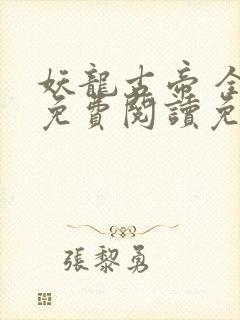 妖龍古帝 全
免費閱讀免
張黎勇